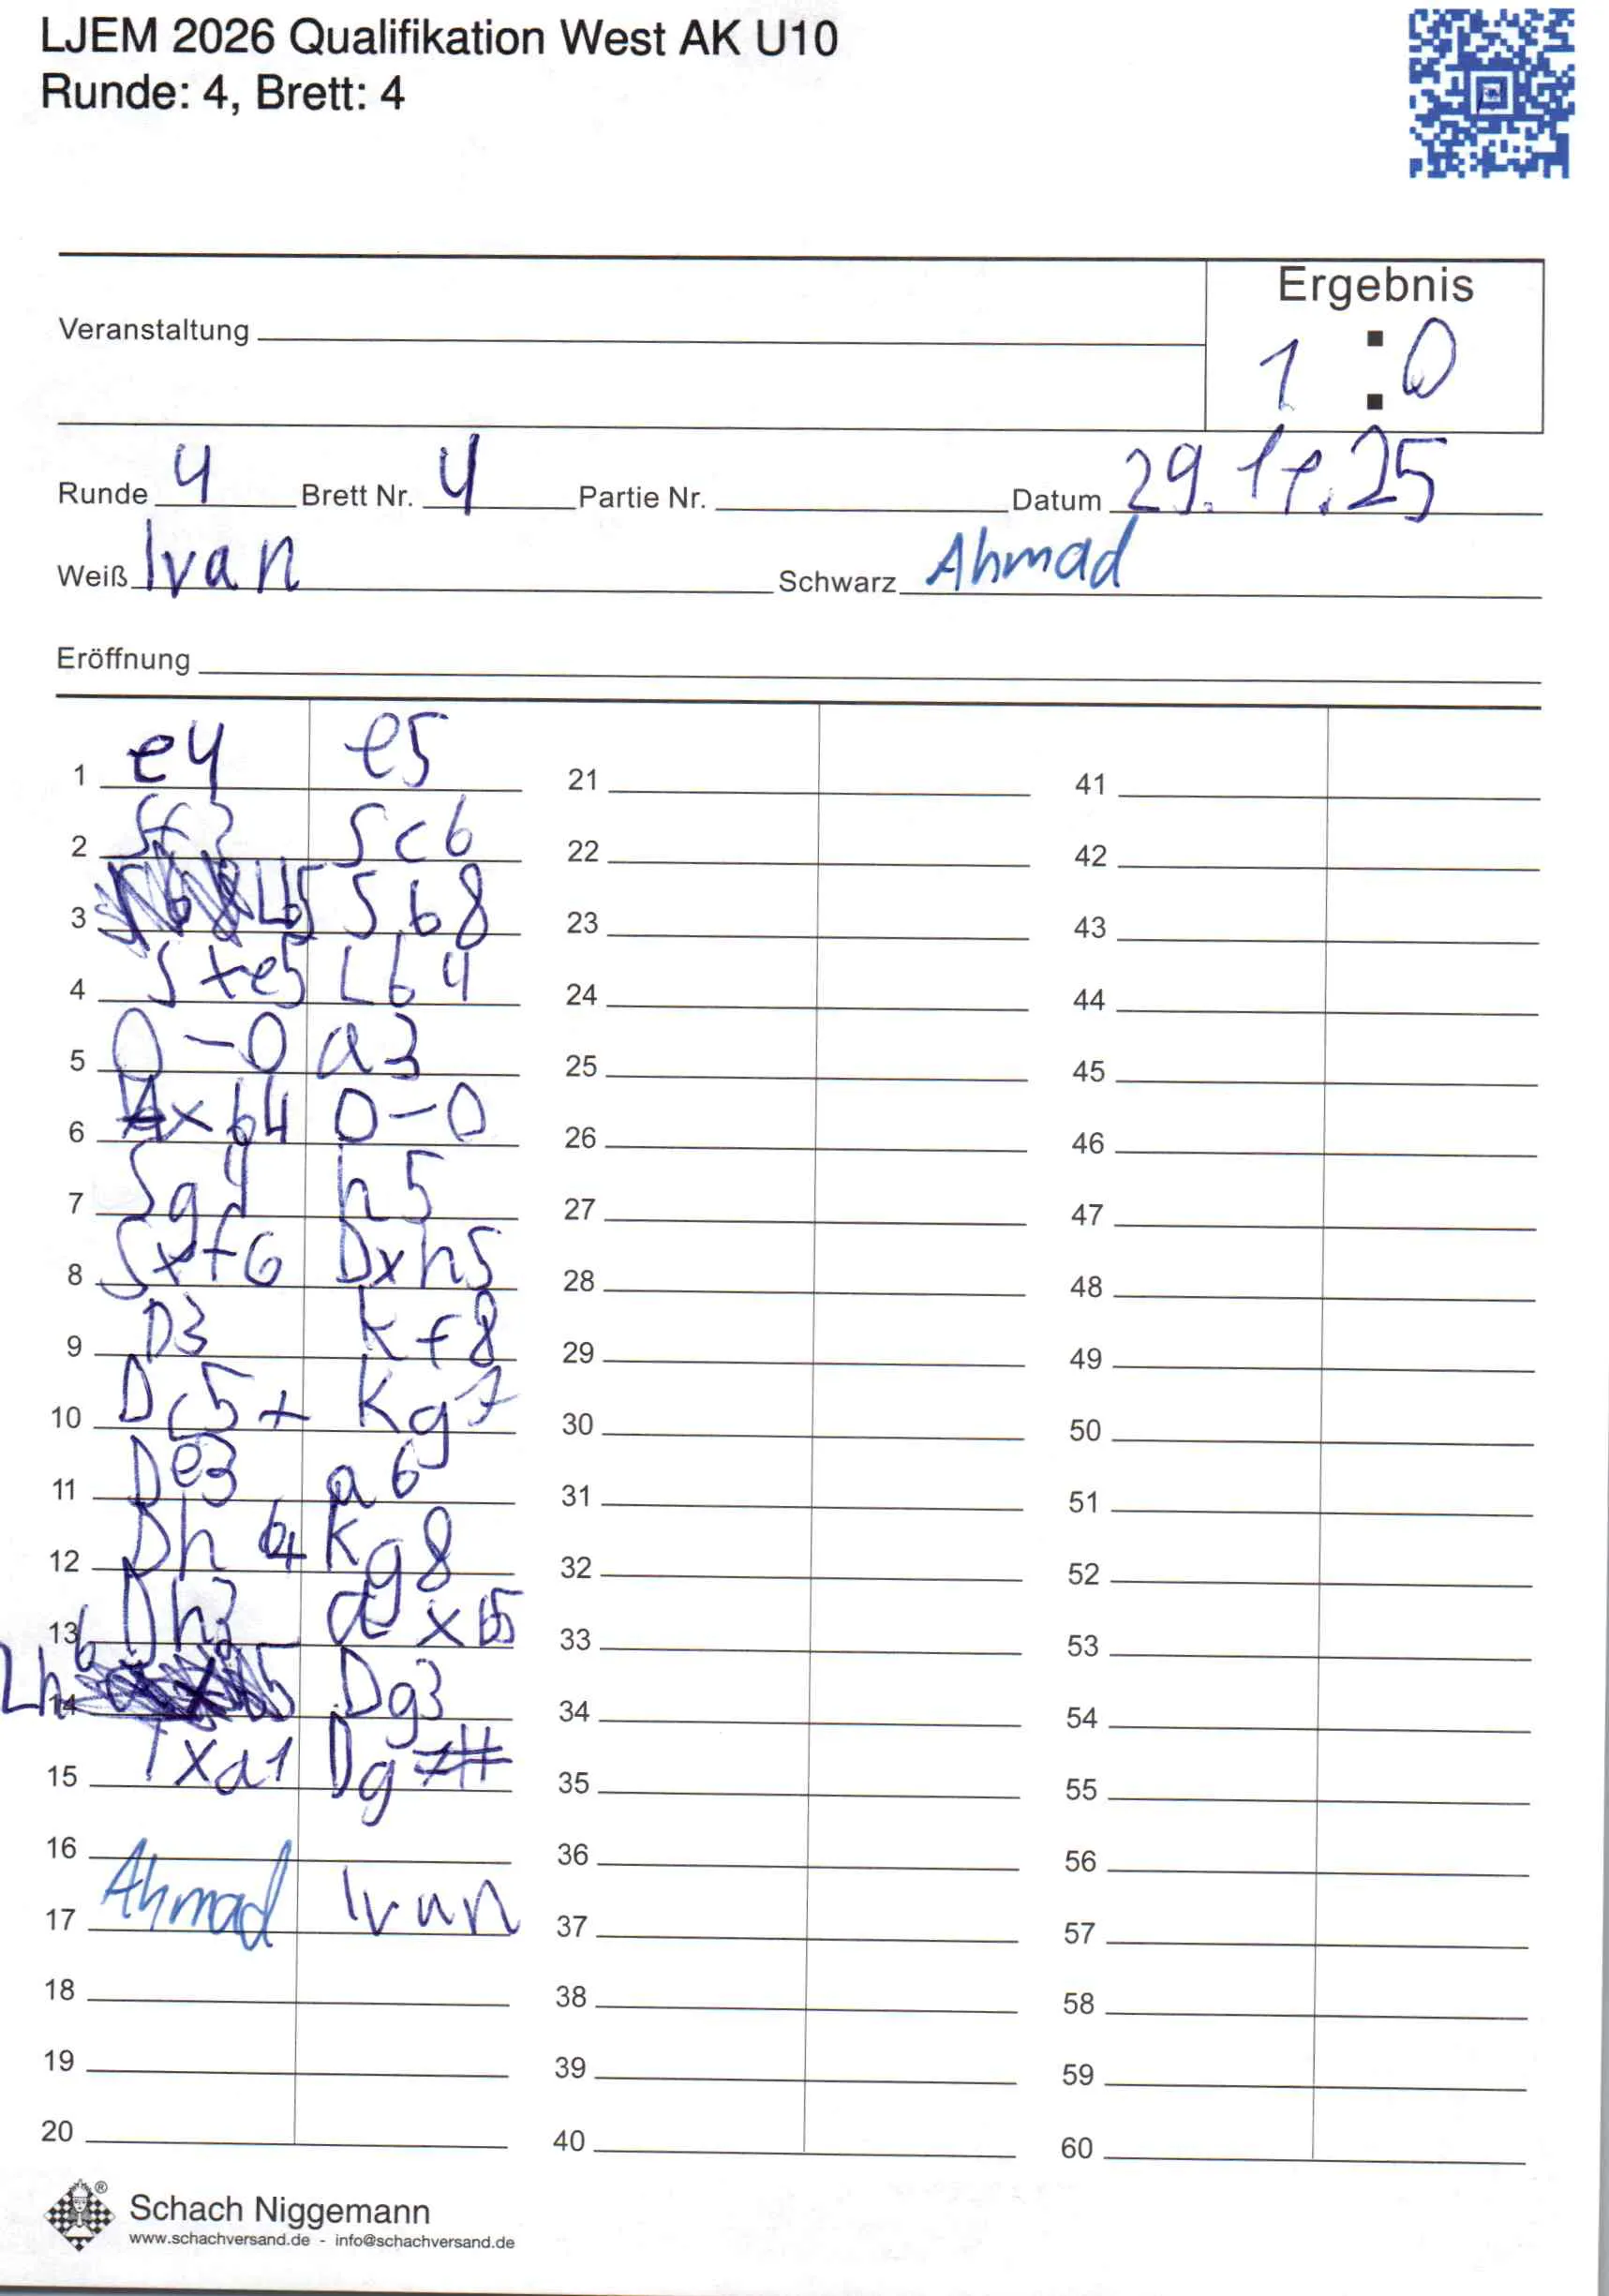 LJEM 2026 Qualifikation West AK U10
Runde: 4, Brett: 4
Ergebnis
Veranstaltung
1 : 0
Runde 4 Brett Nr. 4 Partie Nr. Datum 29.11.25
Weiß Ivan Schwarz Ahmad
Eröffnung
1 e4 e5 21 41
2 Sf3 Sc6 22 42
3 Lb5 Sb8 23 43
4 Sxe5 Lb4 24 44
5 0-0 a3 25 45
6 Axb4 0-0 26 46
7 Sg4 h5 27 47
8 Sxf6 Dxh5 28 48
9 D3 Kf8 29 49
10 Dc5+ Kg7 30 50
11 De3 a6 31 51
12 Dh Kg8 32 52
13 Dh3 axb5 33 53
14 Lh6 Dg3 34 54
15 Txa1 Dg7# 35 55
16 36 56
17 Ahmad Ivan 37 57
18 38 58
19 39 59
20 40 60
Schach Niggemann
www.schachversand.de - info@schachversand.de